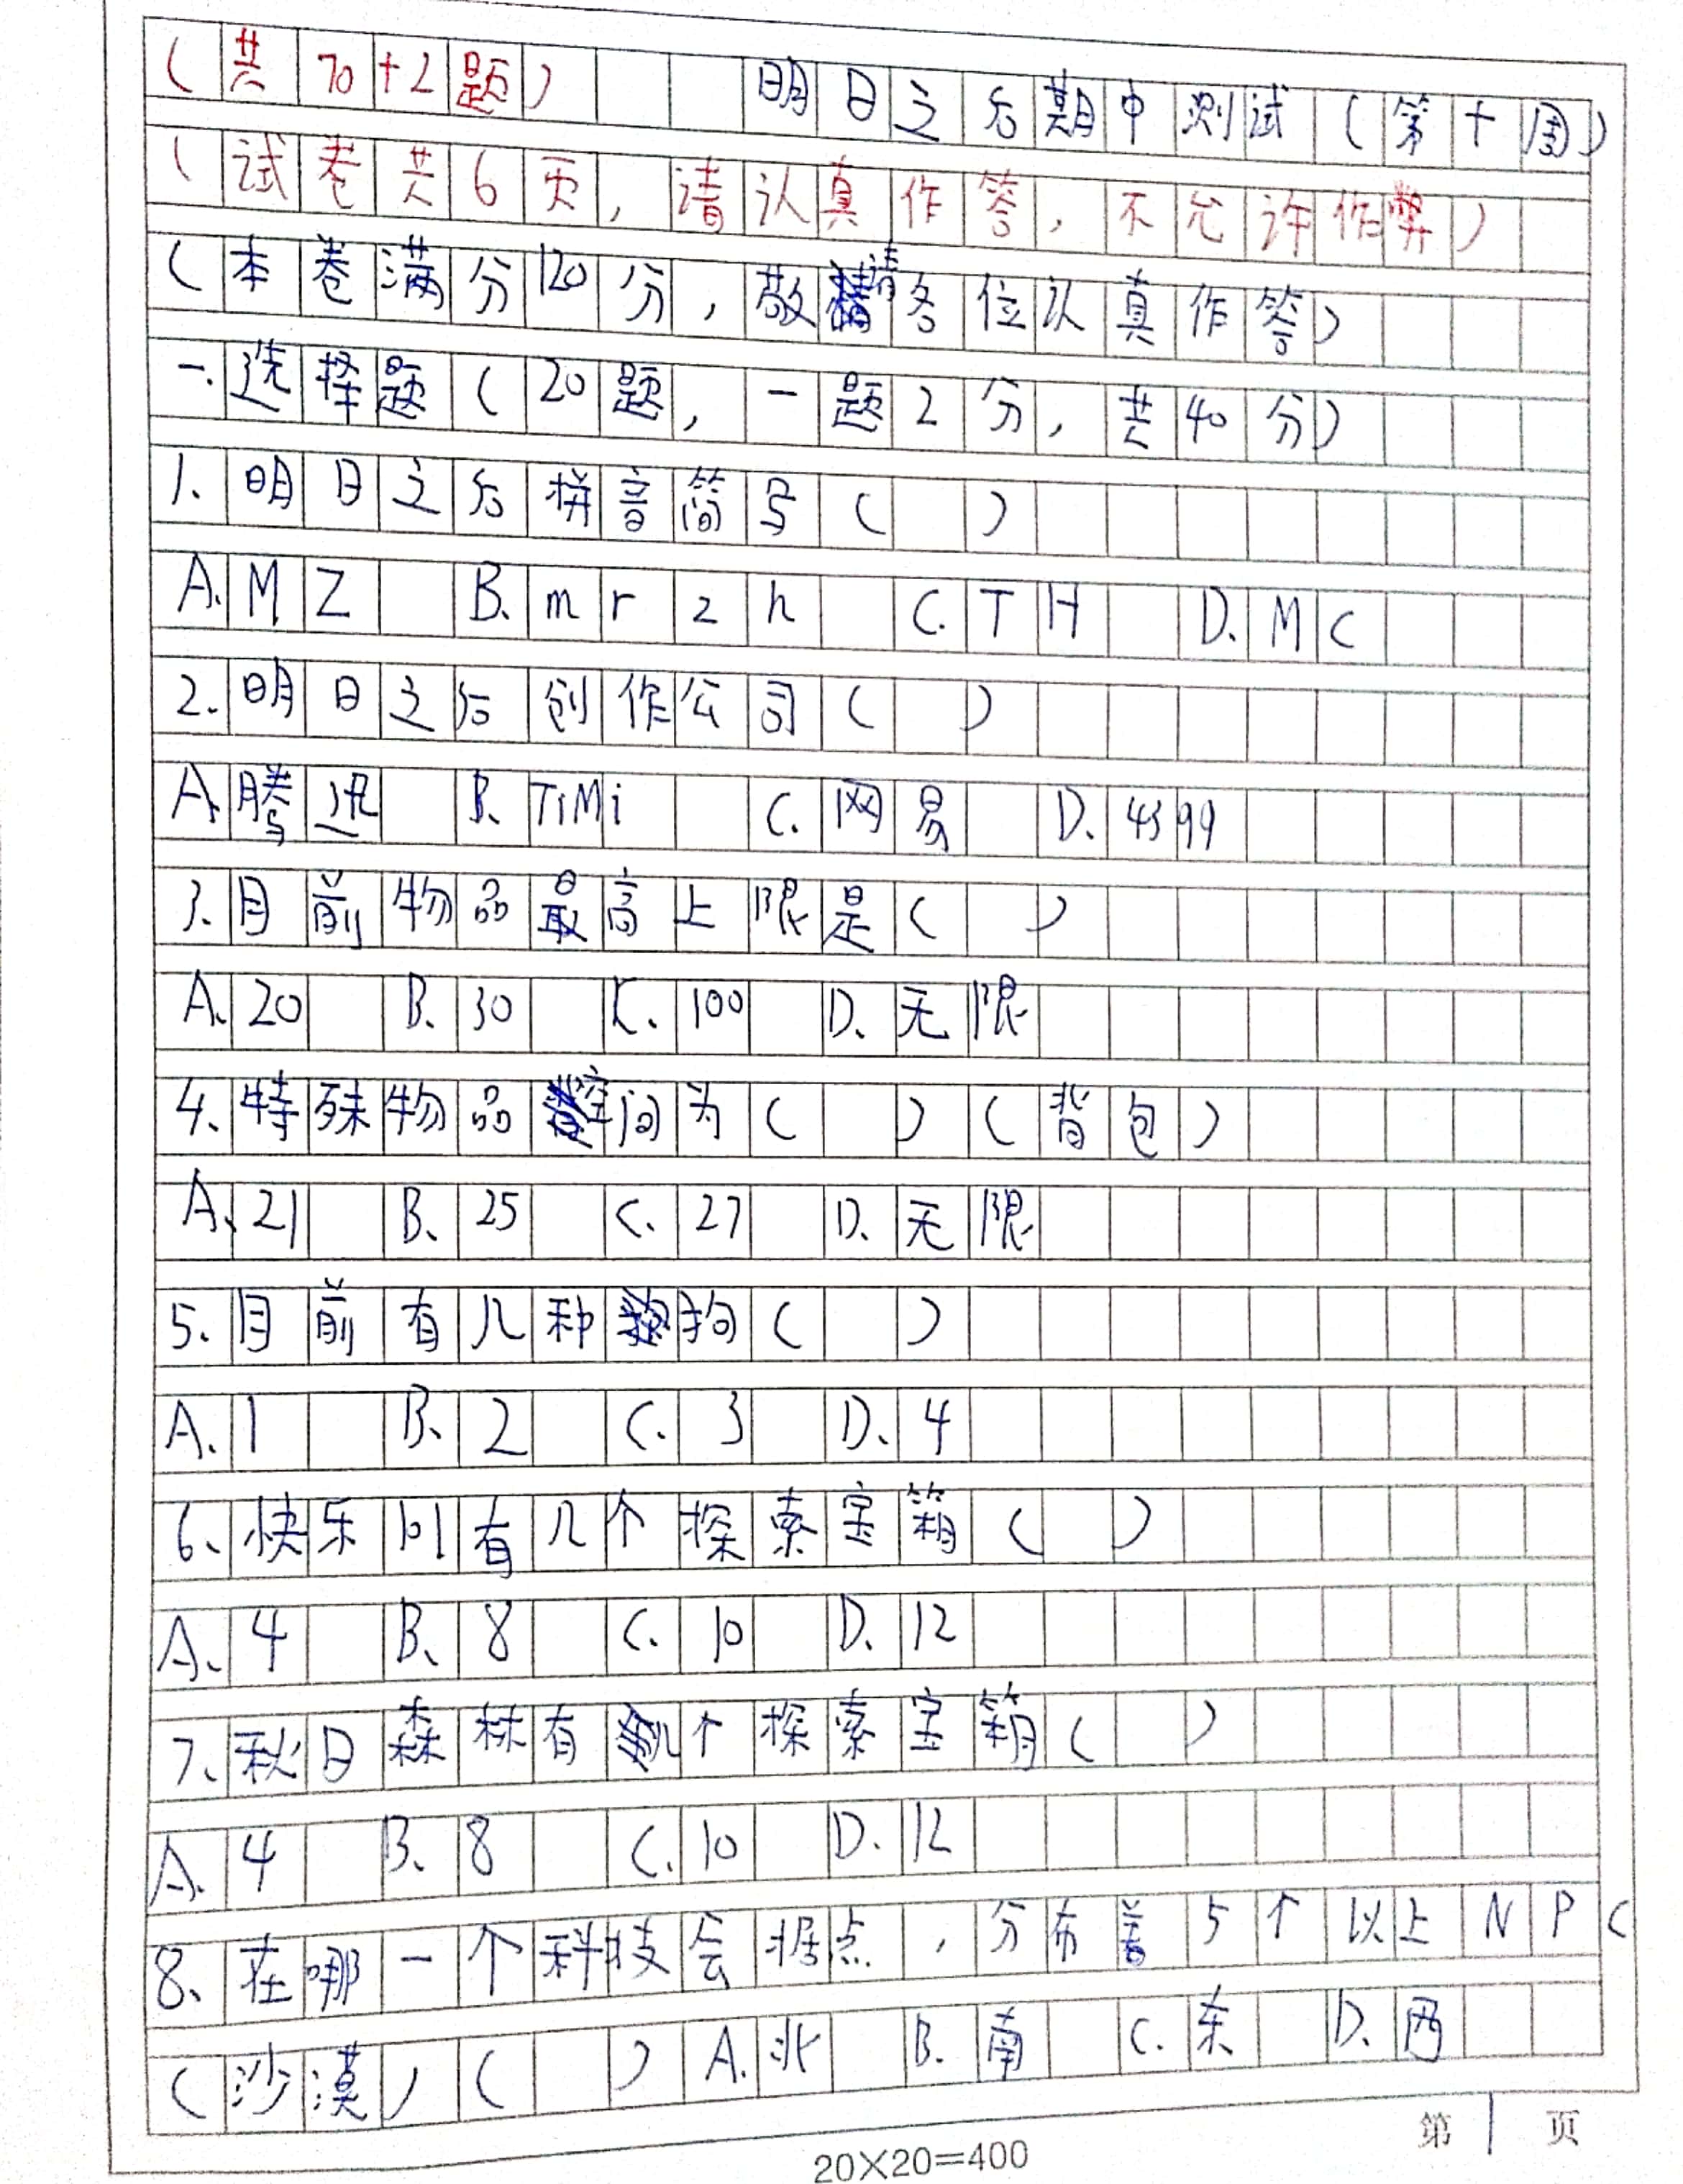 (共70+2题) 明日之后期中测试(第十周)
(试卷共6页,请认真作答,不允许作弊)
(本卷满分120分,敬请各位认真作答)
一.选择题(20题,一题2分,共40分)
1、明日之后拼音简写( )
A.MZ B.mrzh C.TH D.MC
2.明日之后创作公司( )
A.腾讯 B.TiMi C.网易 D.4399
3.目前物品最高上限是( )
A.20 B.30 C.100 D.无限
4、特殊物品空间为( )(背包)
A、21 B、25 C.27 D.无限
5.目前有几种狗( )
A.1 B.2 C.3 D.4
6、快乐101有几个探索宝箱( )
A、4 B、8 C.10 D.12
7、秋日森林有几个探索宝箱( )
A.4 B.8 C.10 D.12
8、在哪一个科技会据点,分布着5个以上NPC
(沙漠)( ) A.北 B.南 C.东 D.西
第1页
20×20=400